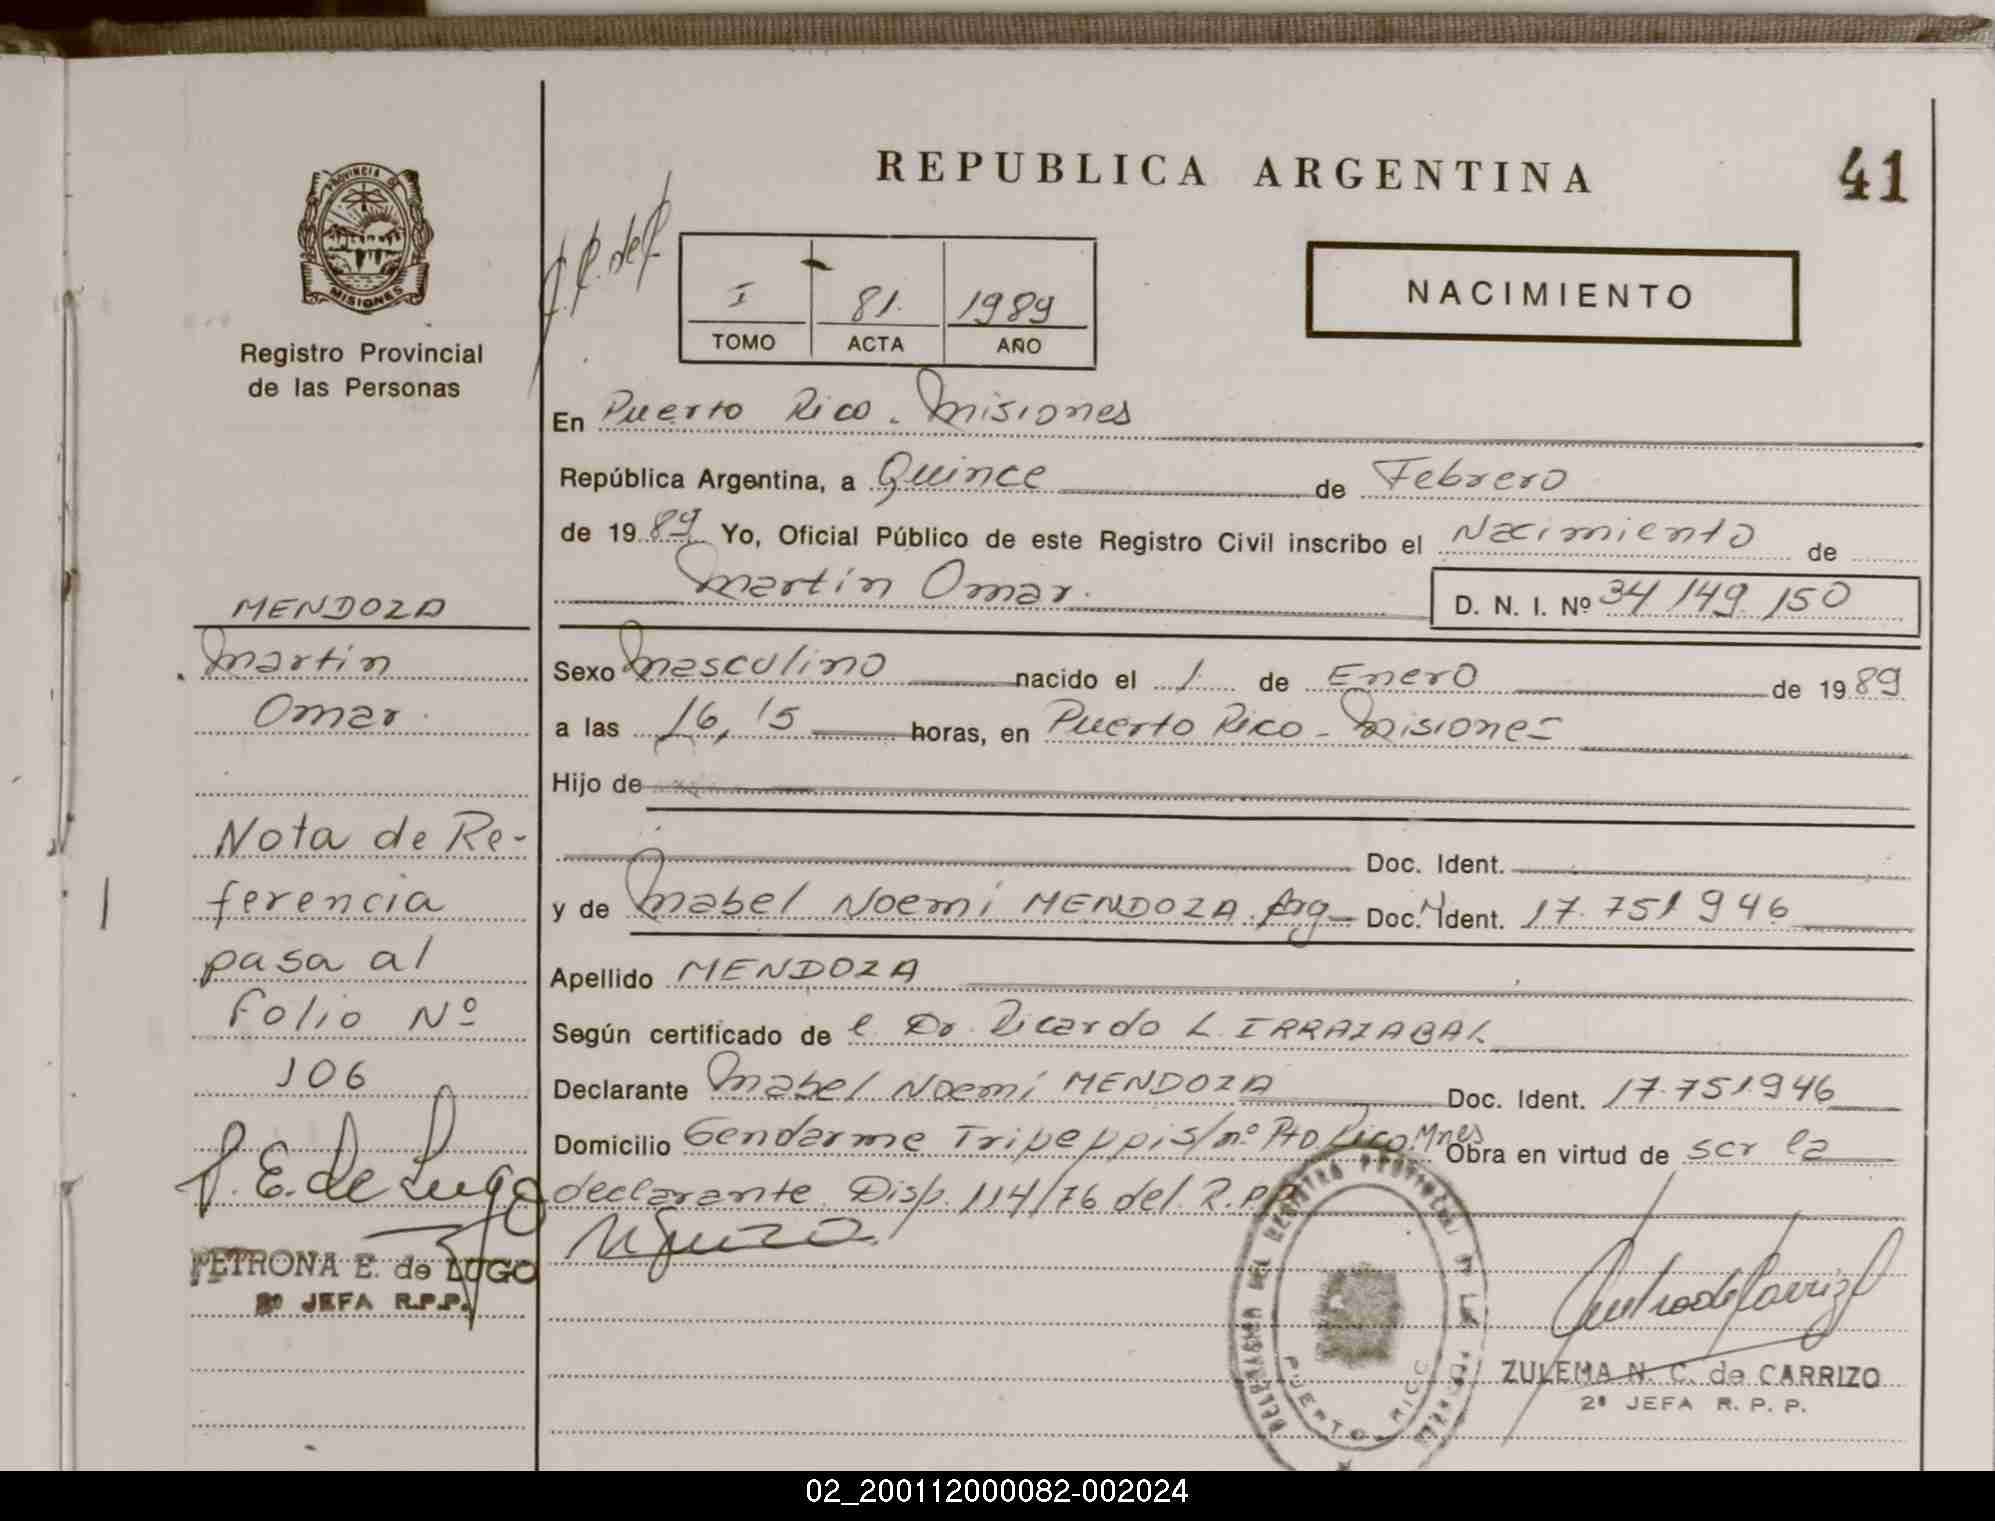 REPUBLICA ARGENTINA
41
PROVINCIA DE
MISIONES
Registro Provincial
de las Personas
I 81. 1989
TOMO ACTA AÑO
NACIMIENTO
En Puerto Rico. Misiones
República Argentina, a Quince de Febrero
de 1989 Yo, Oficial Público de este Registro Civil inscribo el Nacimiento de
Martin Omar.
D. N. I. Nº 34/149.150
Sexo Masculino nacido el 1 de Enero de 1989
a las 16,15 horas, en Puerto Rico - Misiones
Hijo de
Doc. Ident.
y de Mabel Noemí MENDOZA. Arg Doc. Ident. 17.751.946
Apellido MENDOZA
Según certificado de el Dr. Ricardo L. IRRAZABAL
Declarante Mabel Noemí MENDOZA Doc. Ident. 17.751.946
Domicilio Gendarme Tripeppi s/nº Pto Rico. Mnes Obra en virtud de ser la
declarante. Disp. 114/76 del. R.P.P.
MENDOZA
Martin
Omar.
Nota de Re-
ferencia
pasa al
Folio Nº
106
P. E. de Lugo
PETRONA E. de LUGO
2º JEFA R.P.P.
DELEGACION DEL REGISTRO PROVINCIAL DE LAS
PUERTO RICO
ZULEMA N. C. de CARRIZO
2ª JEFA R. P. P.
02_200112000082-002024